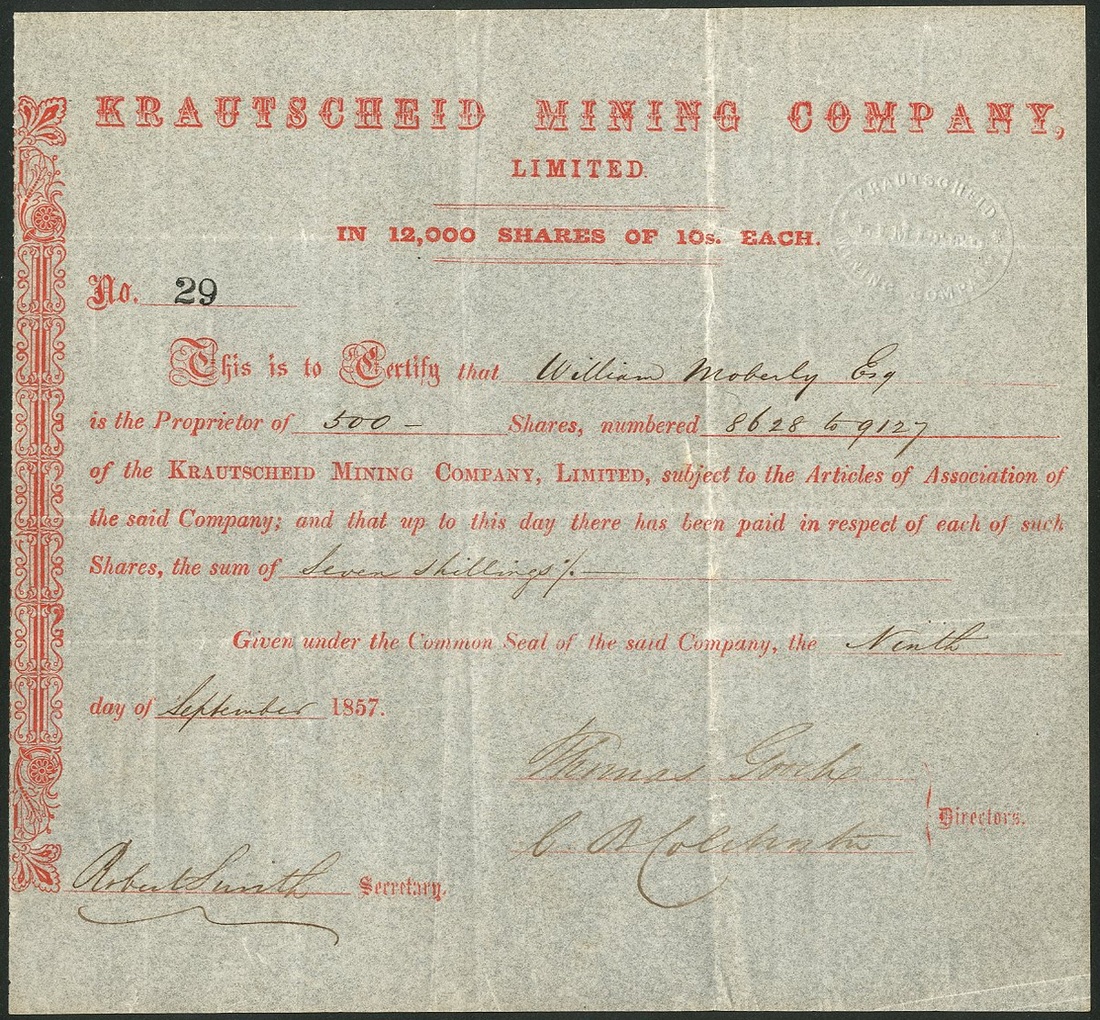 KRAUTSCHEID MINING COMPANY,
LIMITED.
IN 12,000 SHARES OF 10s. EACH.
KRAUTSCHEID MINING COMPANY LIMITED
No. 29
This is to Certify that William Moberly Esq
is the Proprietor of 500 – Shares, numbered 8628 to 9127
of the KRAUTSCHEID MINING COMPANY, LIMITED, subject to the Articles of Association of
the said Company; and that up to this day there has been paid in respect of each of such
Shares, the sum of Seven shillings /. —
Given under the Common Seal of the said Company, the Ninth
day of September 1857.
Thomas
C. B. Directors.
Robert Smith Secretary.